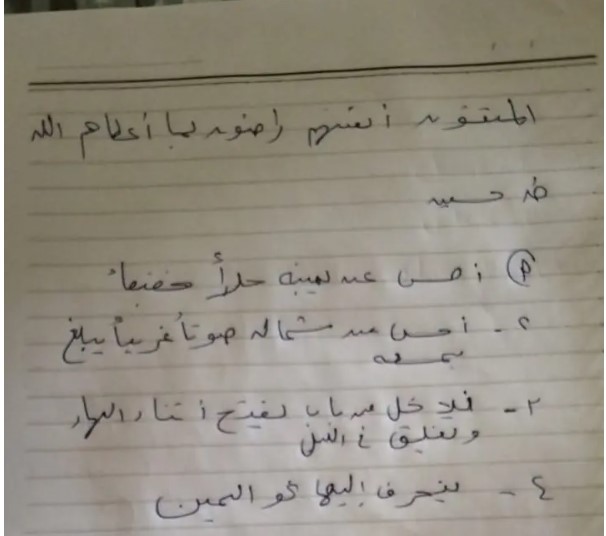 المتقون أنفسهم راضون بما أعطاهم الله
طه حسين
١ أحس عن يمينه حرا خفيفا
٢- أحس من شماله صوتا غريبا يبلغ
سمعه
٣- فلا دخل من باب يفتح أثناء النهار
ويغلق في الليل
٤- ينحرف إليها نحو اليمين